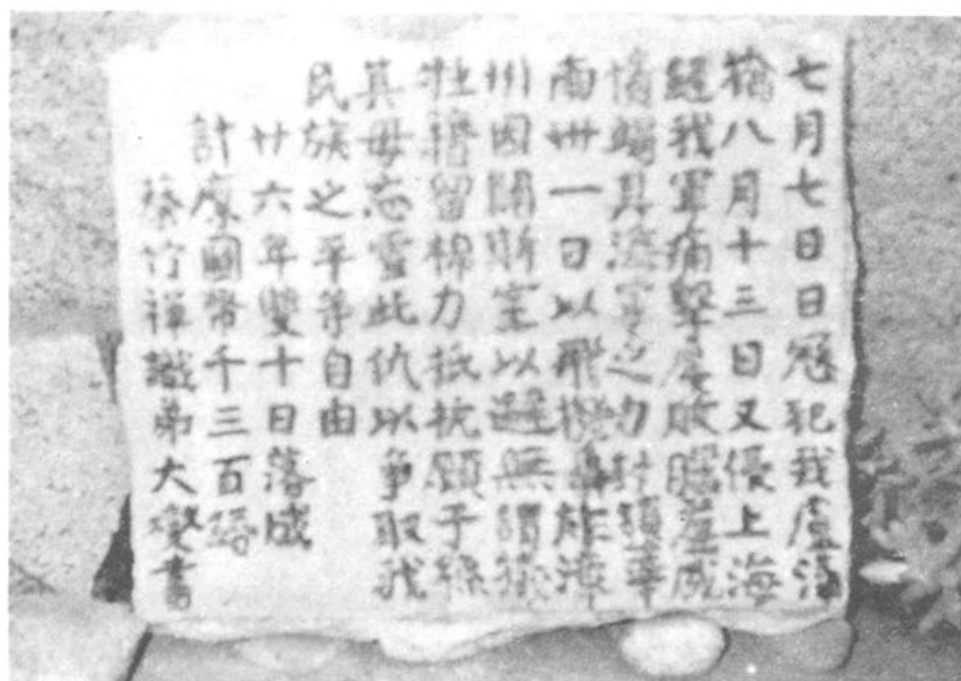 七月七日日寇犯我盧溝
橋八月十三日又侵上海
經我軍痛擊屢敗羞
憤竭其海空之力封鎖華
南卅一日以飛機轟炸漳
州因闢斯室以避無謂犧
牲藉留棉力抵抗願子孫
其毋忘雪此仇以爭取我
民族之平等自由
廿六年雙十日落成
計縻國幣千三百
蔡竹禪識弟大燮書